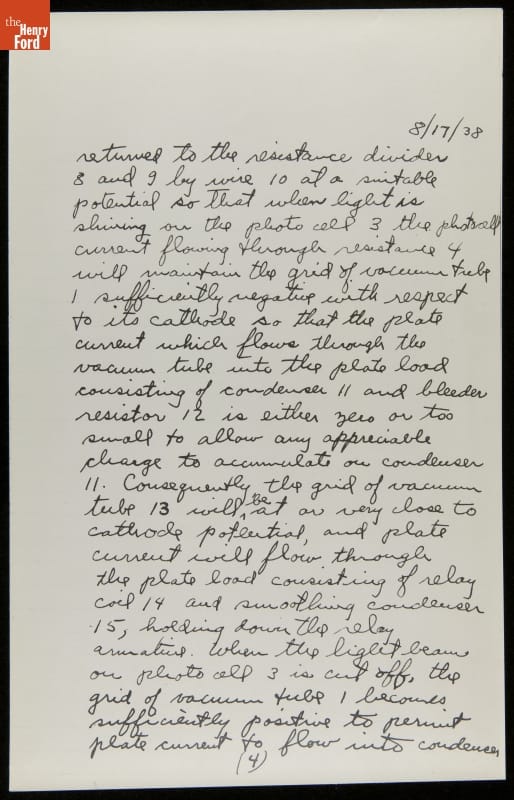 the
Henry
Ford
8/17/38
returned to the resistance divider
8 and 9 by wire 10 at a suitable
potential so that when light is
shining on the photo cell 3 the photocell
current flowing through resistance 4
will maintain the grid of vacuum tube
1 sufficiently negative with respect
to its cathode so that the plate
current which flows through the
vacuum tube into the plate load
consisting of condenser 11 and bleeder
resistor 12 is either zero or too
small to allow any appreciable
charge to accumulate on condenser
11. Consequently the grid of vacuum
tube 13 will be at or very close to
cathode potential, and plate
current will flow through
the plate load consisting of relay
coil 14 and smoothing condenser
15, holding down the relay
armature. When the light beam
on photo cell 3 is cut off, the
grid of vacuum tube 1 becomes
sufficiently positive to permit
plate current to flow into condenser
(4)